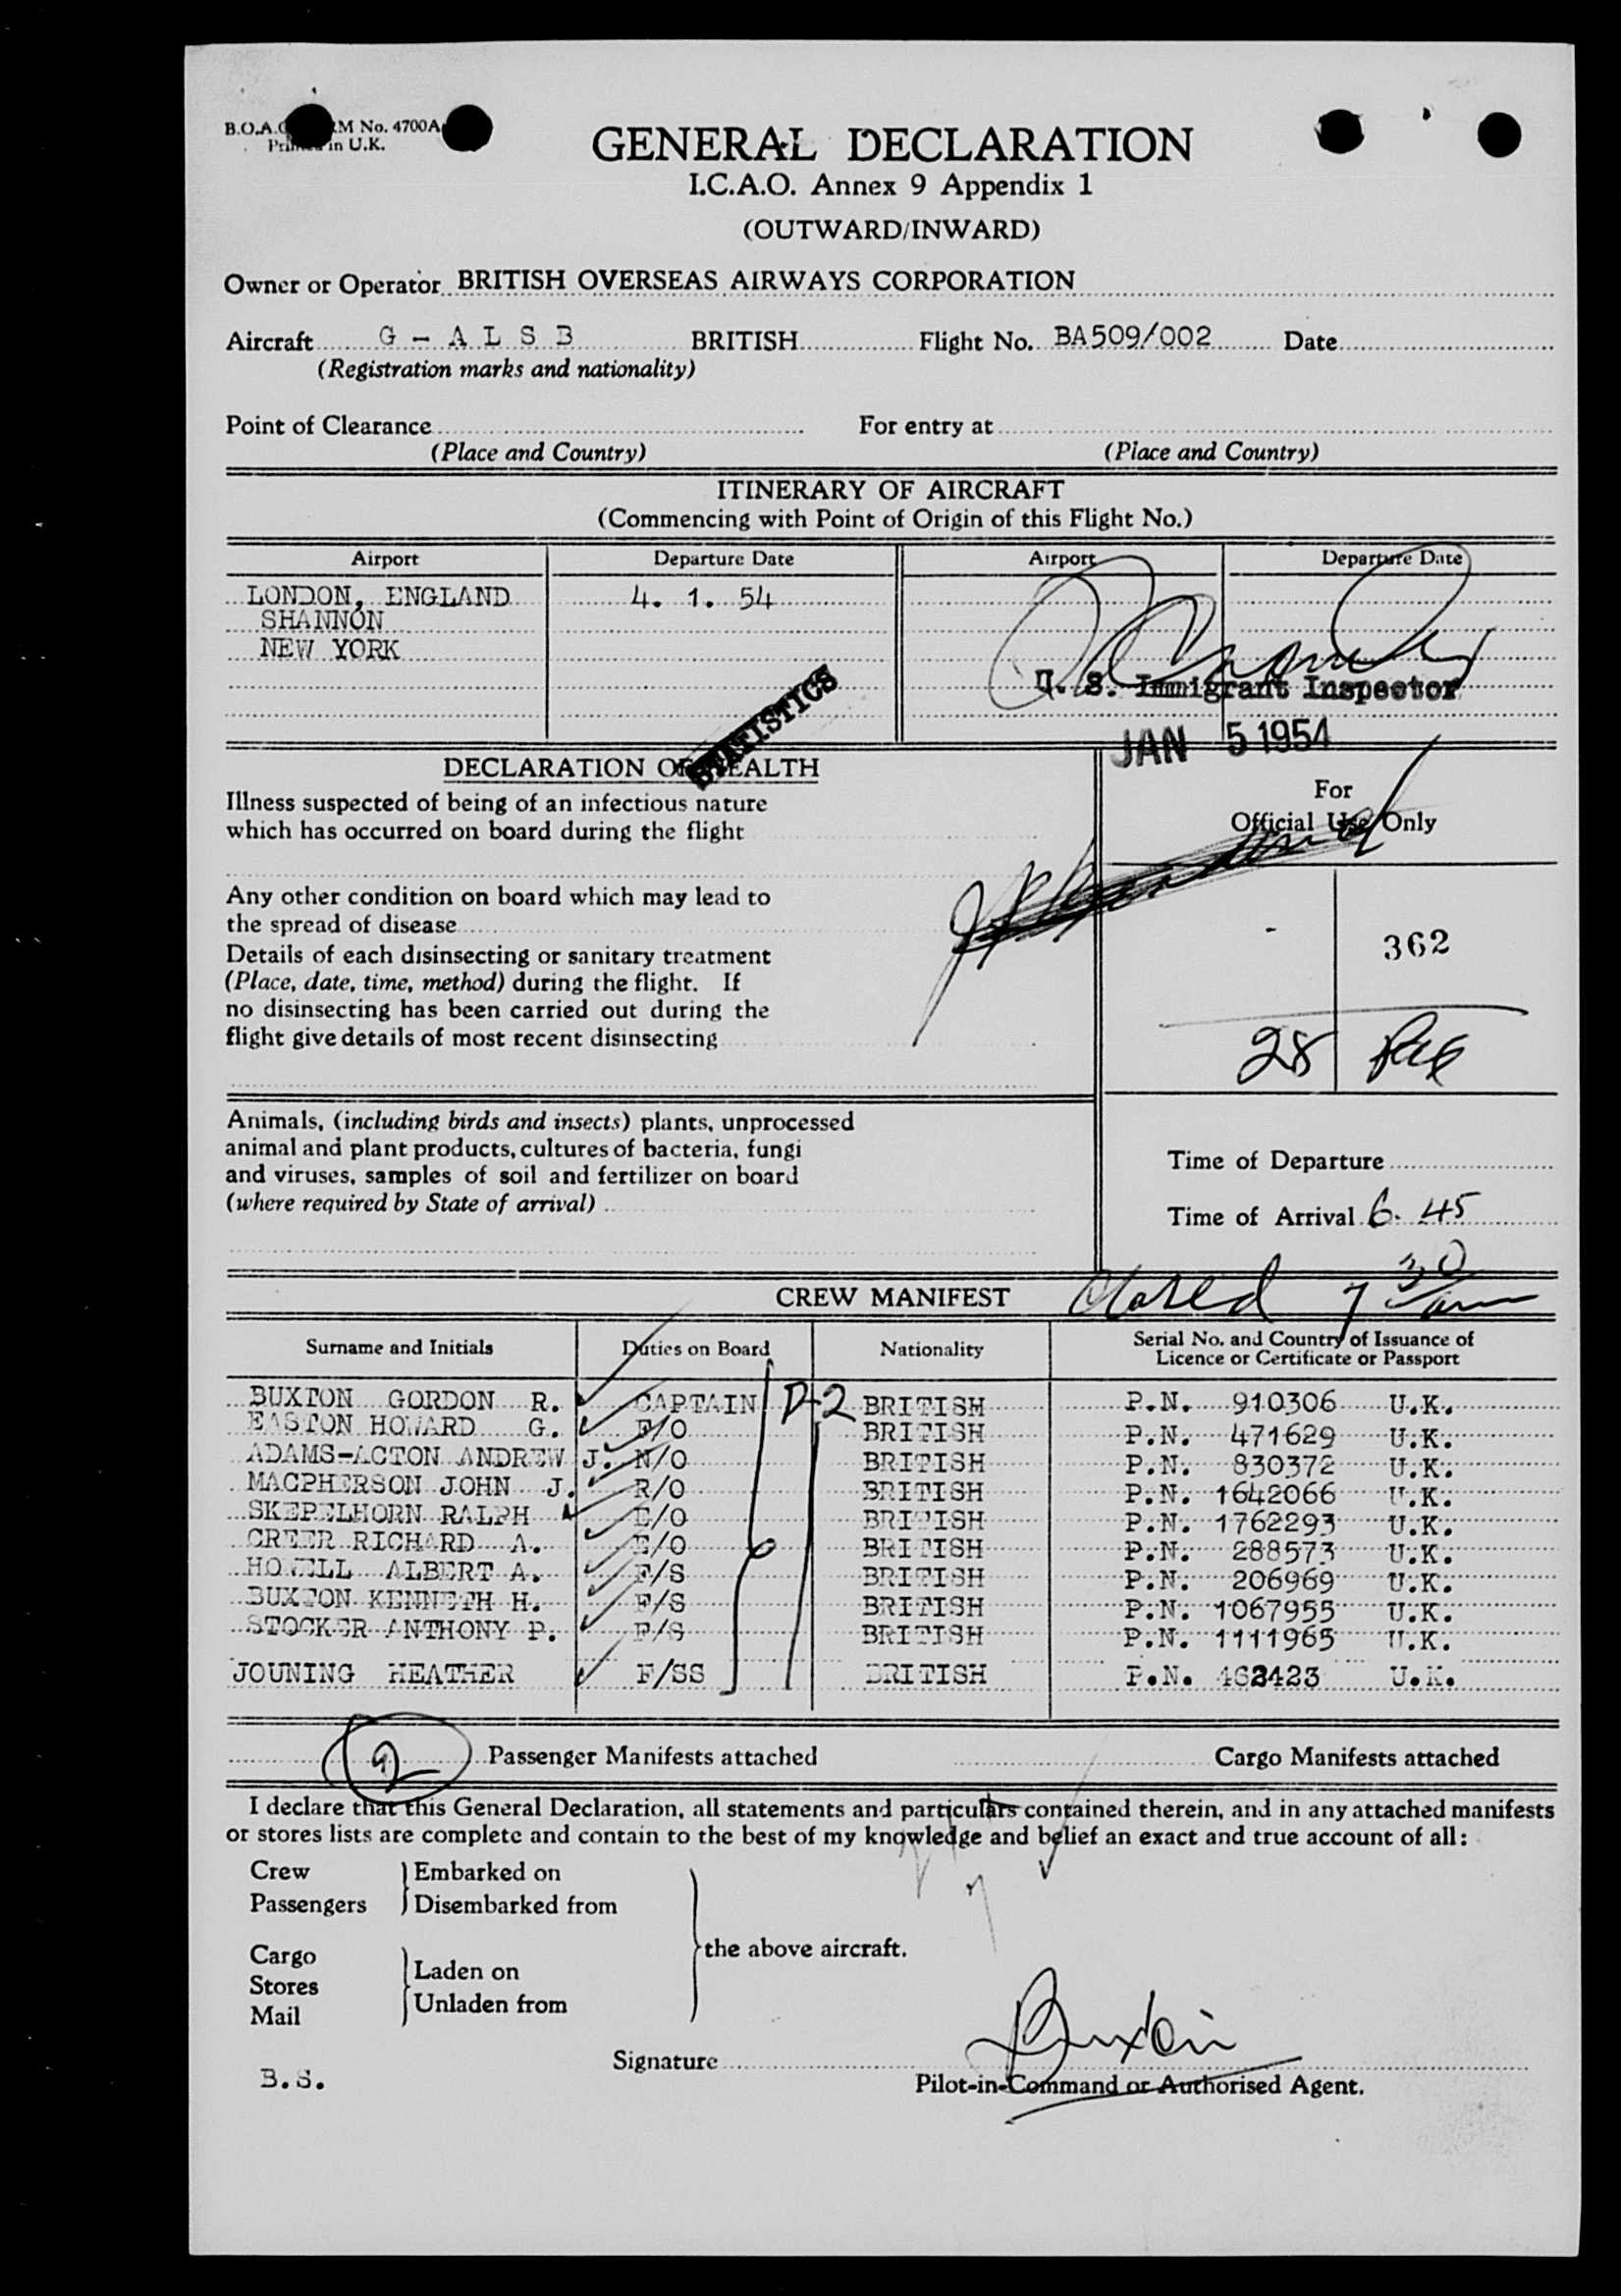 B.O.A.C. FORM No. 4700A
Printed in U.K.
GENERAL DECLARATION
I.C.A.O. Annex 9 Appendix 1
(OUTWARD/INWARD)
Owner or Operator BRITISH OVERSEAS AIRWAYS CORPORATION
Aircraft G - A L S B BRITISH Flight No. BA509/002 Date
(Registration marks and nationality)
Point of Clearance For entry at
(Place and Country) (Place and Country)
ITINERARY OF AIRCRAFT
(Commencing with Point of Origin of this Flight No.)
Airport Departure Date Airport Departure Date
LONDON, ENGLAND 4. 1. 54
SHANNON
NEW YORK
U. S. Immigrant Inspector
STATISTICS
JAN 5 1954
DECLARATION OF HEALTH
Illness suspected of being of an infectious nature
which has occurred on board during the flight
For
Official Use Only
Any other condition on board which may lead to
the spread of disease
Details of each disinsecting or sanitary treatment
(Place, date, time, method) during the flight. If
no disinsecting has been carried out during the
flight give details of most recent disinsecting
362
28
Animals, (including birds and insects) plants, unprocessed
animal and plant products, cultures of bacteria, fungi
and viruses, samples of soil and fertilizer on board
(where required by State of arrival)
Time of Departure
Time of Arrival 6. 45
CREW MANIFEST
7 30
Surname and Initials Duties on Board Nationality Serial No. and Country of Issuance of
Licence or Certificate or Passport
BUXTON GORDON R. CAPTAIN D-2 BRITISH P.N. 910306 U.K.
EASTON HOWARD G. F/O BRITISH P.N. 471629 U.K.
ADAMS-ACTON ANDREW J. N/O BRITISH P.N. 830372 U.K.
MACPHERSON JOHN J. R/O BRITISH P.N. 1642066 U.K.
SKEPELHORN RALPH E/O BRITISH P.N. 1762293 U.K.
GREER RICHARD A. E/O BRITISH P.N. 288573 U.K.
HOWELL ALBERT A. F/S BRITISH P.N. 206969 U.K.
BUXTON KENNETH H. F/S BRITISH P.N. 1067955 U.K.
STOCKER ANTHONY P. F/S BRITISH P.N. 1111965 U.K.
JOUNING HEATHER F/SS BRITISH P.N. U.K.
2 Passenger Manifests attached Cargo Manifests attached
I declare that this General Declaration, all statements and particulars contained therein, and in any attached manifests
or stores lists are complete and contain to the best of my knowledge and belief an exact and true account of all:
Crew Embarked on
Passengers Disembarked from
the above aircraft.
Cargo
Stores Laden on
Mail Unladen from
Signature Buxton
B.S.
Pilot-in-Command or Authorised Agent.